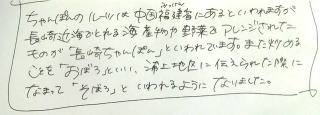 ふっけん
ちゃんぽんのルーツは中国福建省にあるといわれますが
長崎近海がとれる海産物や野菜をアレンジされた
ものが「長崎ちゃんぽん」といわれています。また炒める
ことを「おぼろ」といい、浦上地区に伝えられた際に
なまって「そぼろ」といわれるようになりました。